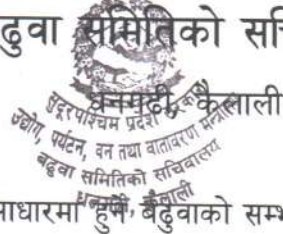 ढुवा समितिको सचि
धनगढी, कैलाली
सुदूरपश्चिम प्रदेश
उद्योग, पर्यटन, वन तथा वातावरण मन्त्रालय
बढुवा समितिको सचिवालय
धनगढी, कैलाली
माधारमा हुने बढुवाको सम्भ